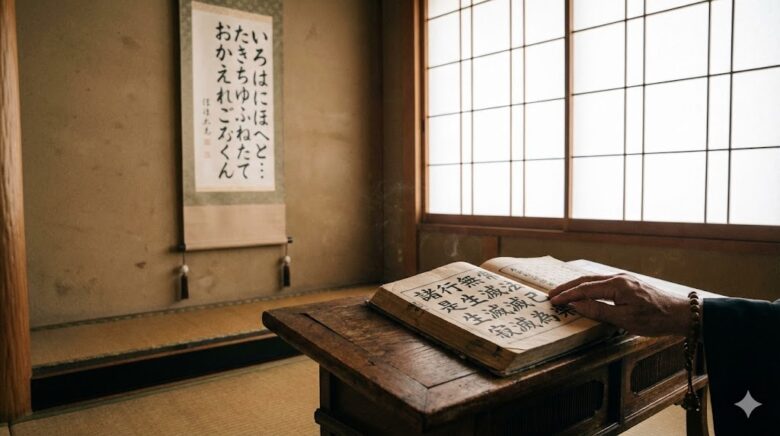 いろはにほへと…
たきちゆふねたて
おかえれごくん
諸行無常
是生滅法
生滅滅已
寂滅為